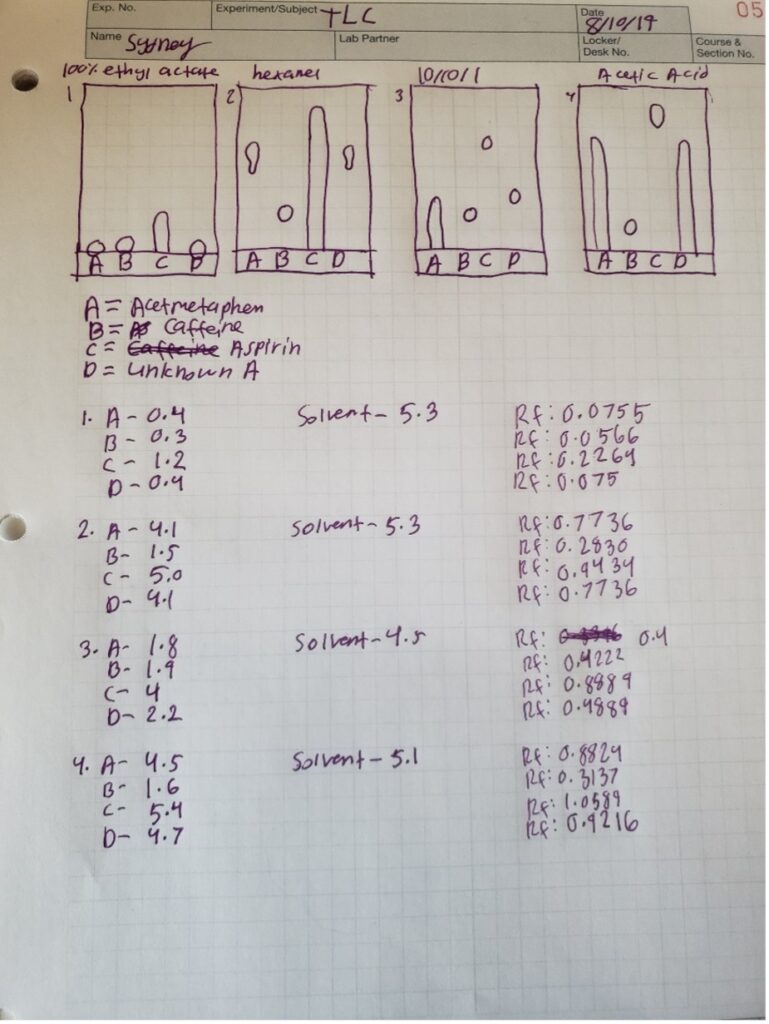 Exp. No. Experiment/Subject TLC Date 8/10/19 05
Name Sydney Lab Partner Locker/ Desk No. Course & Section No.
100% ethyl actate hexanes 10/10/1 Acetic Acid
1 2 3 4
A B C D A B C D A B C D A B C D
A = Acetmetaphen
B = Caffeine
C = Caffeine Aspirin
D = unknown A
1. A - 0.4 Solvent - 5.3 Rf: 0.0755
B - 0.3 Rf: 0.0566
C - 1.2 Rf: 0.2264
D - 0.4 Rf: 0.075
2. A - 4.1 Solvent - 5.3 Rf: 0.7736
B - 1.5 Rf: 0.2830
C - 5.0 Rf: 0.9434
D - 4.1 Rf: 0.7736
3. A - 1.8 Solvent - 4.5 Rf: 0.4
B - 1.9 Rf: 0.4222
C - 4 Rf: 0.8889
D - 2.2 Rf: 0.4889
4. A - 4.5 Solvent - 5.1 Rf: 0.8824
B - 1.6 Rf: 0.3137
C - 5.4 Rf: 1.0589
D - 4.7 Rf: 0.9216